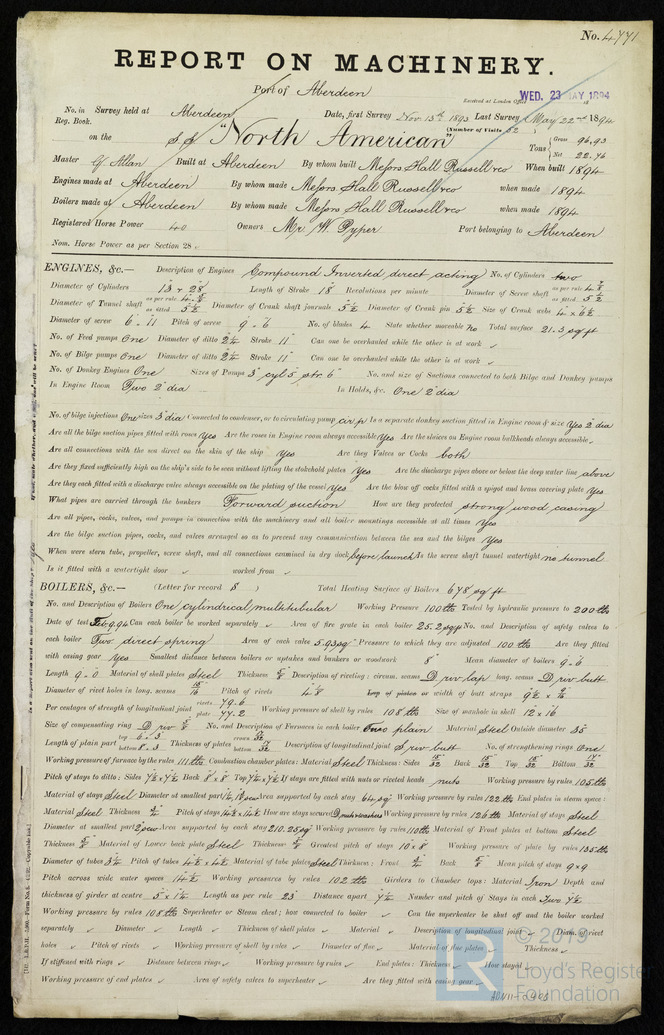 No. 4771
REPORT ON MACHINERY.
Port of Aberdeen
Received at London Office WED. 23 MAY 1894
No. in Reg. Book. Survey held at Aberdeen Date, first Survey Nov. 13th 1893 Last Survey May 22nd 1894
(Number of Visits 52)
on the S.S. "North American" Tons Gross 96.93 Net 22.76
Master G. Allan Built at Aberdeen By whom built Messrs Hall Russell & co When built 1894
Engines made at Aberdeen By whom made Messrs Hall Russell & co when made 1894
Boilers made at Aberdeen By whom made Messrs Hall Russell & co when made 1894
Registered Horse Power 40 Owners Mr W. Pyper Port belonging to Aberdeen
Nom. Horse Power as per Section 28
ENGINES, &c.— Description of Engines Compound Inverted direct acting No. of Cylinders two
Diameter of Cylinders 13 & 28 Length of Stroke 18 Revolutions per minute Diameter of Screw shaft as per rule as fitted 5½
Diameter of Tunnel shaft as per rule as fitted 5½ Diameter of Crank shaft journals 5½ Diameter of Crank pin 5½ Size of Crank webs 4 x 6½
Diameter of screw 6 . 11 Pitch of screw 9 . 6 No. of blades 4 State whether moveable no Total surface 21.3 sq ft
No. of Feed pumps One Diameter of ditto 2¼ Stroke 11" Can one be overhauled while the other is at work ✓
No. of Bilge pumps One Diameter of ditto 2¼ Stroke 11" Can one be overhauled while the other is at work ✓
No. of Donkey Engines One Sizes of Pumps 3" cyl 5" str. 6" No. and size of Suctions connected to both Bilge and Donkey pumps
In Engine Room Two 2" dia In Holds, &c. One 2" dia
No. of bilge injections One sizes 3" dia Connected to condenser, or to circulating pump cir p Is a separate donkey suction fitted in Engine room & size Yes 2" dia
Are all the bilge suction pipes fitted with roses Yes Are the roses in Engine room always accessible Yes Are the sluices on Engine room bulkheads always accessible ✓
Are all connections with the sea direct on the skin of the ship Yes Are they Valves or Cocks both
Are they fixed sufficiently high on the ship's side to be seen without lifting the stokehold plates Yes Are the discharge pipes above or below the deep water line above
Are they each fitted with a discharge valve always accessible on the plating of the vessel Yes Are the blow off cocks fitted with a spigot and brass covering plate Yes
What pipes are carried through the bunkers Forward suction How are they protected strong wood casing
Are all pipes, cocks, valves, and pumps in connection with the machinery and all boiler mountings accessible at all times Yes
Are the bilge suction pipes, cocks, and valves arranged so as to prevent any communication between the sea and the bilges Yes
When were stern tube, propeller, screw shaft, and all connections examined in dry dock before launch Is the screw shaft tunnel watertight no tunnel
Is it fitted with a watertight door ✓ worked from ✓
BOILERS, &c.— (Letter for record S ) Total Heating Surface of Boilers 678 sq ft
No. and Description of Boilers One, cylindrical, multitubular Working Pressure 100 lbs Tested by hydraulic pressure to 200 lbs
Date of test Can each boiler be worked separately ✓ Area of fire grate in each boiler 25.2 sq ft No. and Description of safety valves to
each boiler Two direct spring Area of each valve 5.93 sq" Pressure to which they are adjusted 100 lbs Are they fitted
with easing gear Yes Smallest distance between boilers or uptakes and bunkers or woodwork 8" Mean diameter of boilers 9 . 6
Length 9 . 0 Material of shell plates Steel Thickness Description of riveting: circum. seams D riv lap long. seams D riv butt
Diameter of rivet holes in long. seams 15/16 Pitch of rivets width of butt straps
Per centages of strength of longitudinal joint rivets 79.6 plate 77.2 Working pressure of shell by rules 108 lbs Size of manhole in shell 12 x 16
Size of compensating ring No. and Description of Furnaces in each boiler Two plain Material Steel Outside diameter 35
Length of plain part top 6 . 3 bottom 8 . 3 Thickness of plates crown bottom Description of longitudinal joint S, riv butt No. of strengthening rings One
Working pressure of furnace by the rules 111 lbs Combustion chamber plates: Material Steel Thickness: Sides Back Top Bottom
Pitch of stays to ditto: Sides 7½ x 7½ Back 8 x 8 Top 7½ x 7½ If stays are fitted with nuts or riveted heads nuts Working pressure by rules 105 lbs
Material of stays Steel Diameter at smallest part Area supported by each stay 64 sq" Working pressure by rules 122 lbs End plates in steam space:
Material Steel Thickness Pitch of stays 14½ x 14½ How are stays secured Working pressure by rules 126 lbs Material of stays Steel
Diameter at smallest part Area supported by each stay 210.25 sq" Working pressure by rules 110 lbs Material of Front plates at bottom Steel
Thickness Material of Lower back plate Steel Thickness Greatest pitch of stays 10 x 8 Working pressure of plate by rules 135 lbs
Diameter of tubes 3¼ Pitch of tubes 4½ x 4½ Material of tube plates Steel Thickness: Front Back Mean pitch of stays 9 x 9
Pitch across wide water spaces 14½ Working pressures by rules 102 lbs Girders to Chamber tops: Material Iron Depth and
thickness of girder at centre 5 x 1½ Length as per rule 23 Distance apart 7½ Number and pitch of Stays in each Two 7½
Working pressure by rules 108 lbs Superheater or Steam chest; how connected to boiler ✓ Can the superheater be shut off and the boiler worked
separately ✓ Diameter ✓ Length ✓ Thickness of shell plates ✓ Material ✓ Description of longitudinal joint ✓ Diam. of rivet
holes ✓ Pitch of rivets ✓ Working pressure of shell by rules ✓ Diameter of flue ✓ Material of flue plates ✓ Thickness ✓
If stiffened with rings ✓ Distance between rings ✓ Working pressure by rules ✓ End plates: Thickness ✓ How stayed ✓
Working pressure of end plates ✓ Area of safety valves to superheater ✓ Are they fitted with easing gear ✓
© 2019
Lloyd's Register
Foundation